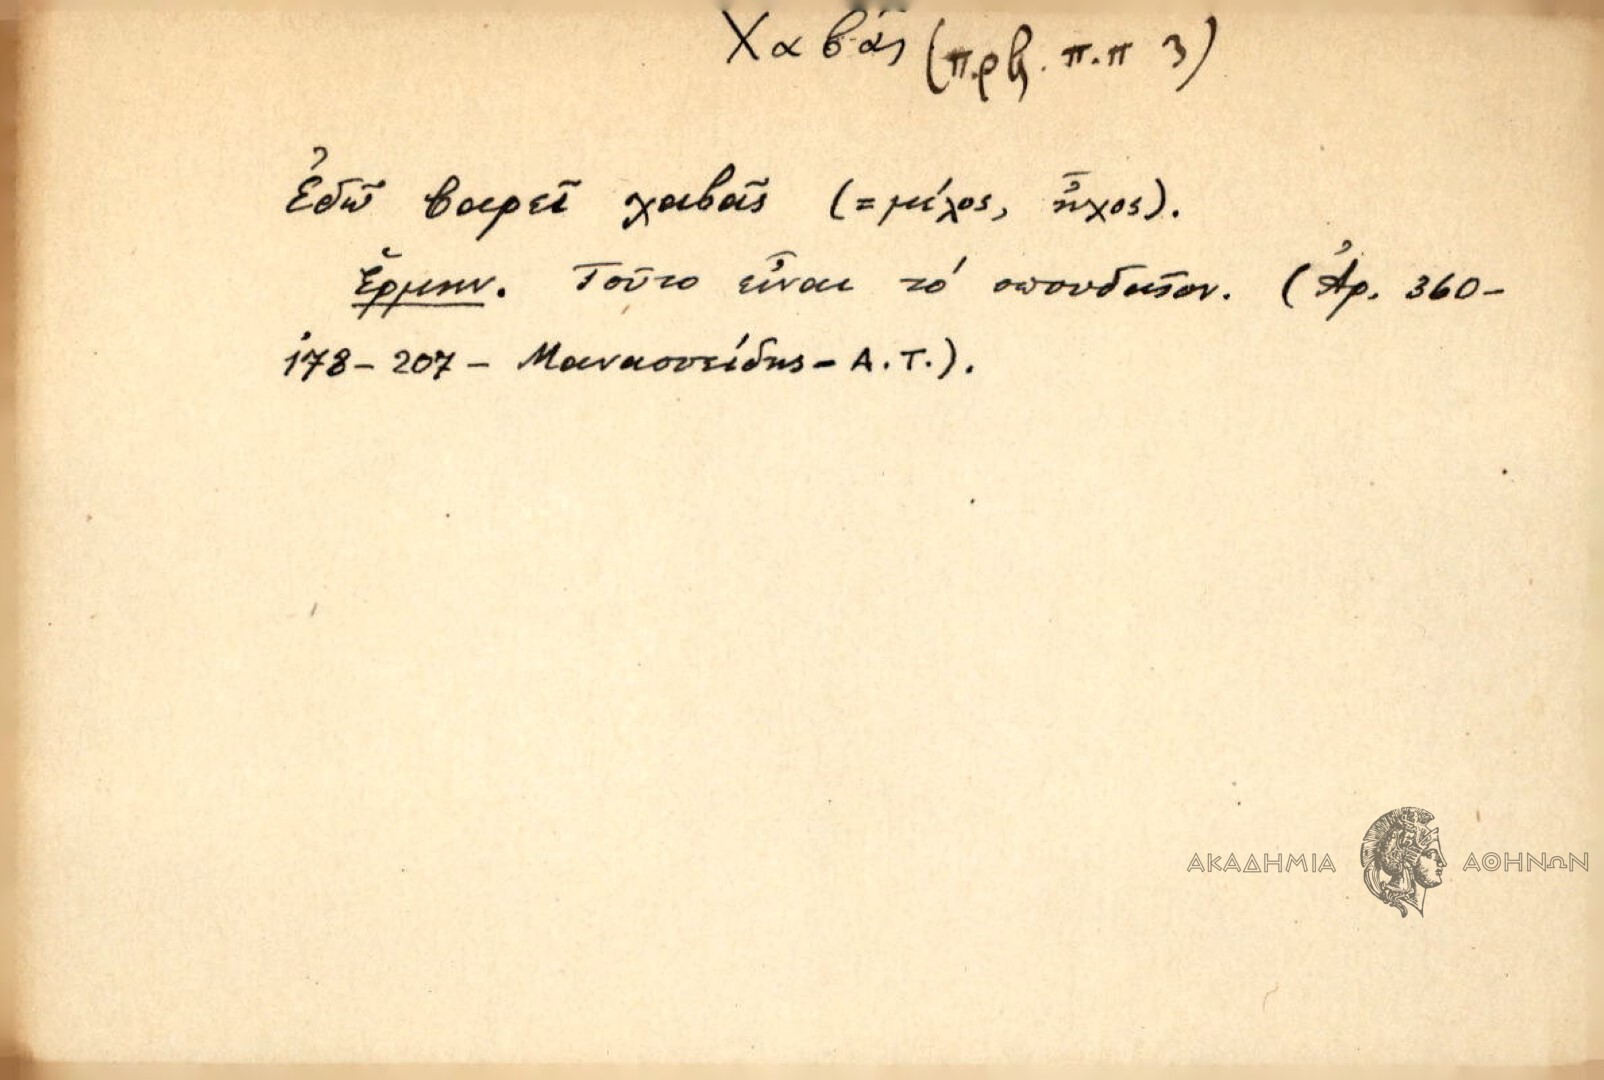 Χαβᾶς (πρβ. π.π 3)
Ἐδῶ βαρεῖ χαβᾶς (= μέλος, ἦχος).
Ἑρμην. Τοῦτο εἶναι τό σπουδαῖον. (Ἀρ. 360-
178-207- Μανασσείδης - Α.Τ.).
ΑΚΑΔΗΜΙΑ ΑΘΗΝΩΝ